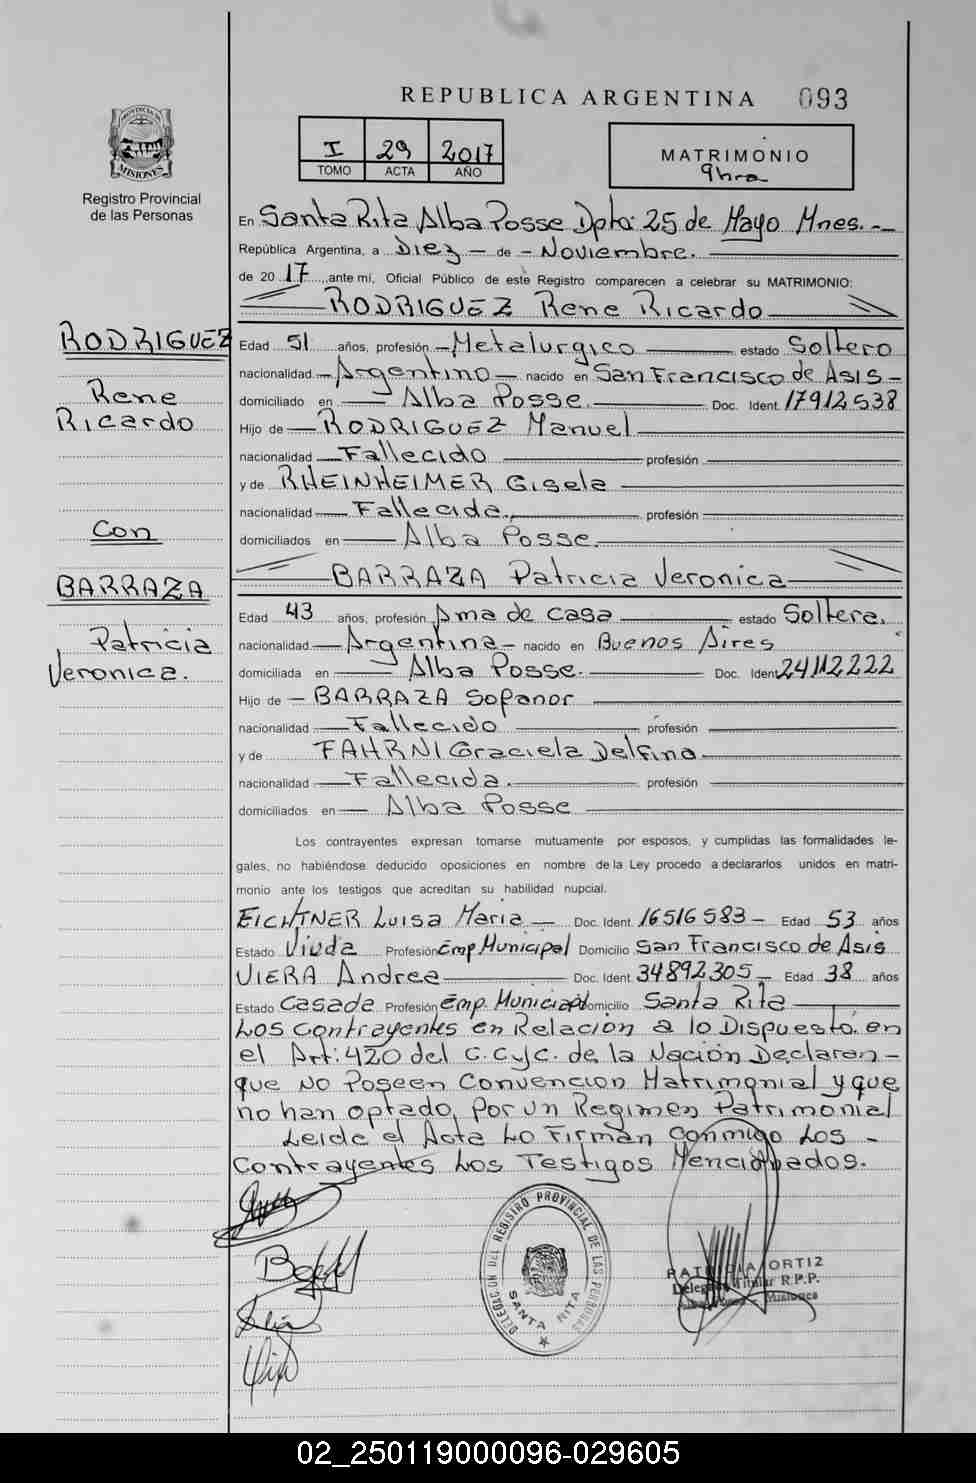 REPUBLICA ARGENTINA 093
I 29 2017
TOMO ACTA AÑO
MATRIMONIO
9hra
PROVINCIA DE
MISIONES
Registro Provincial
de las Personas
En Santa Rita Alba Posse Dpto: 25 de Mayo Mnes.--
República Argentina, a Diez - de - Noviembre.
de 20 17 ,ante mi, Oficial Público de este Registro comparecen a celebrar su MATRIMONIO:
RODRIGUEZ Rene Ricardo
RODRIGUEZ
Rene
Ricardo
Con
BARRAZA
Patricia
Veronica.
Edad 51 años, profesión - Metalurgico estado Soltero
nacionalidad - Argentino - nacido en San Francisco de Asis -
domiciliado en Alba Posse. Doc. Ident. 17912538
Hijo de RODRIGUEZ Manuel
nacionalidad Fallecido profesión
y de RHEINHEIMER Gisela
nacionalidad Fallecida. profesión
domiciliados en Alba Posse.
BARRAZA Patricia Veronica
Edad 43 años, profesión Ama de casa estado Soltera.
nacionalidad Argentina - nacido en Buenos Aires
domiciliada en Alba Posse. Doc. Ident. 24112222
Hijo de - BARRAZA Sofanor
nacionalidad Fallecido profesión
y de FAHRNI Graciela Delfina
nacionalidad Fallecida. profesión
domiciliados en Alba Posse
Los contrayentes expresan tomarse mutuamente por esposos, y cumplidas las formalidades le-
gales, no habiéndose deducido oposiciones en nombre de la Ley procedo a declararlos unidos en matri-
monio ante los testigos que acreditan su habilidad nupcial.
EICHTNER Luisa Maria - Doc. Ident. 16516583 - Edad 53 años
Estado Viuda Profesión Emp Municipal Domicilio San Francisco de Asis
VIERA Andrea Doc. Ident. 34892305 - Edad 38 años
Estado Casada Profesión Emp. Municipal Domicilio Santa Rita
Los contrayentes en Relación a lo Dispuesto en
el Art: 420 del C.C.yC. de la Nación Declaran -
que No Poseen Convencion Matrimonial y que
no han optado por un Regimen Patrimonial
Leida el Acta Lo Firman conmigo Los -
Contrayentes Los Testigos Mencionados.
DELEGACION DEL REGISTRO PROVINCIAL DE LAS PERSONAS
SANTA RITA
PATRICIA ORTIZ
Delegada Titular R.P.P.
Misiones
02_250119000096-029605